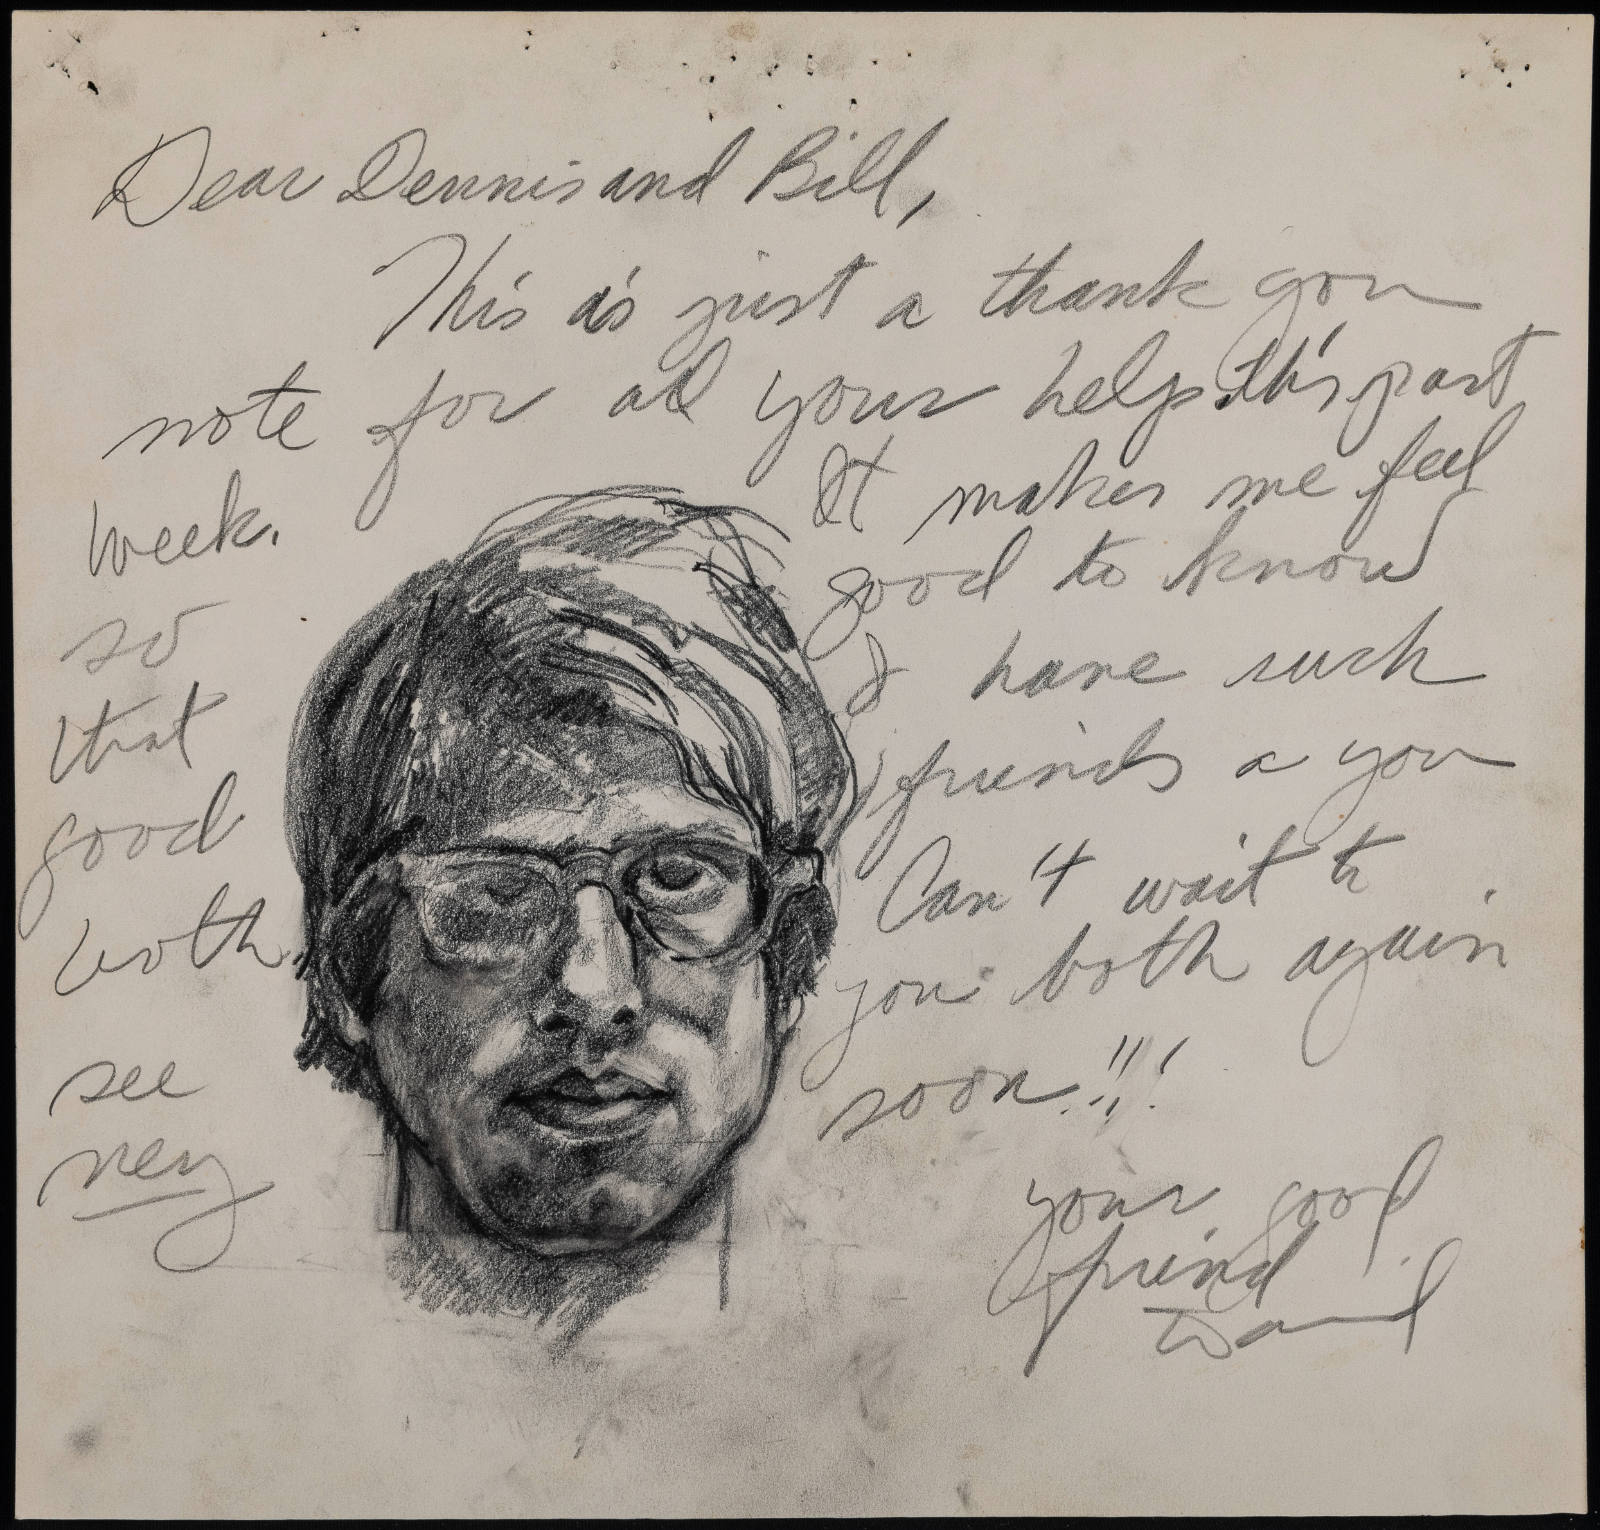 Dear Dennis and Bill,
This is just a thank you
note for all your help this past
week. It makes me feel
so good to know
that I have such
good friends a you
both. Can't wait to
see you both again
very soon!!!
your good
friend
David